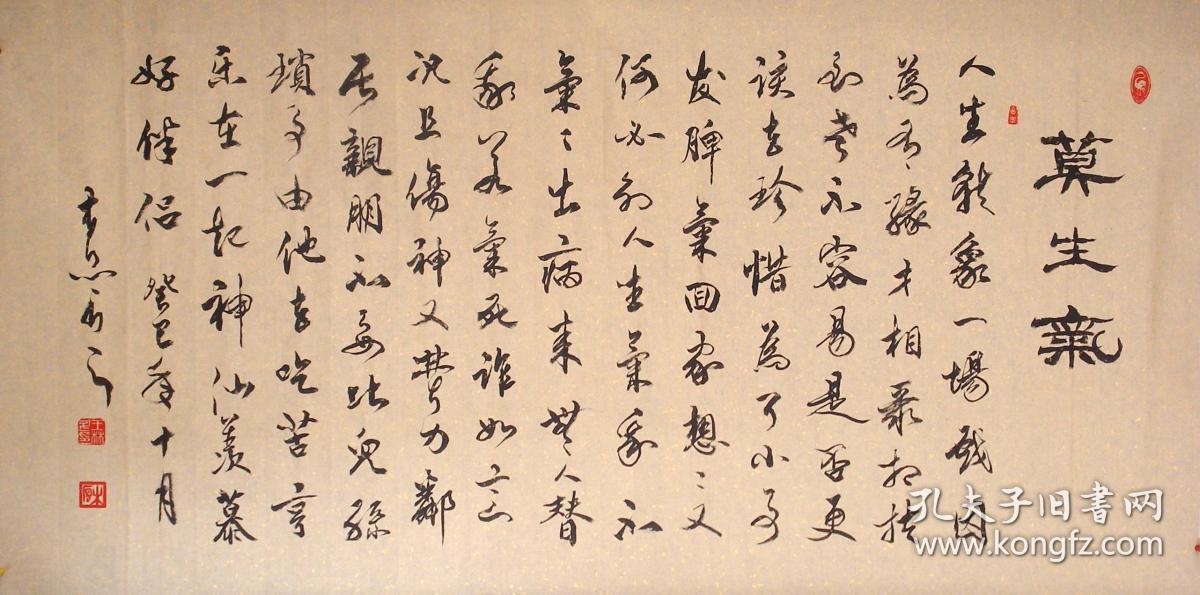 莫生氣
人生就象一場戲因
為有緣才相聚相扶
到老不容易是否更
該去珍惜為了小事
发脾氣回家想〻又
何必別人生氣我不
氣〻出病来無人替
我若氣死誰如意
况且傷神又費力鄰
居親朋不要比兒孫
瑣事由他去吃苦享
樂在一起神仙羨慕
好伴侣 癸巳年十月
孔夫子旧书网
www.kongfz.com